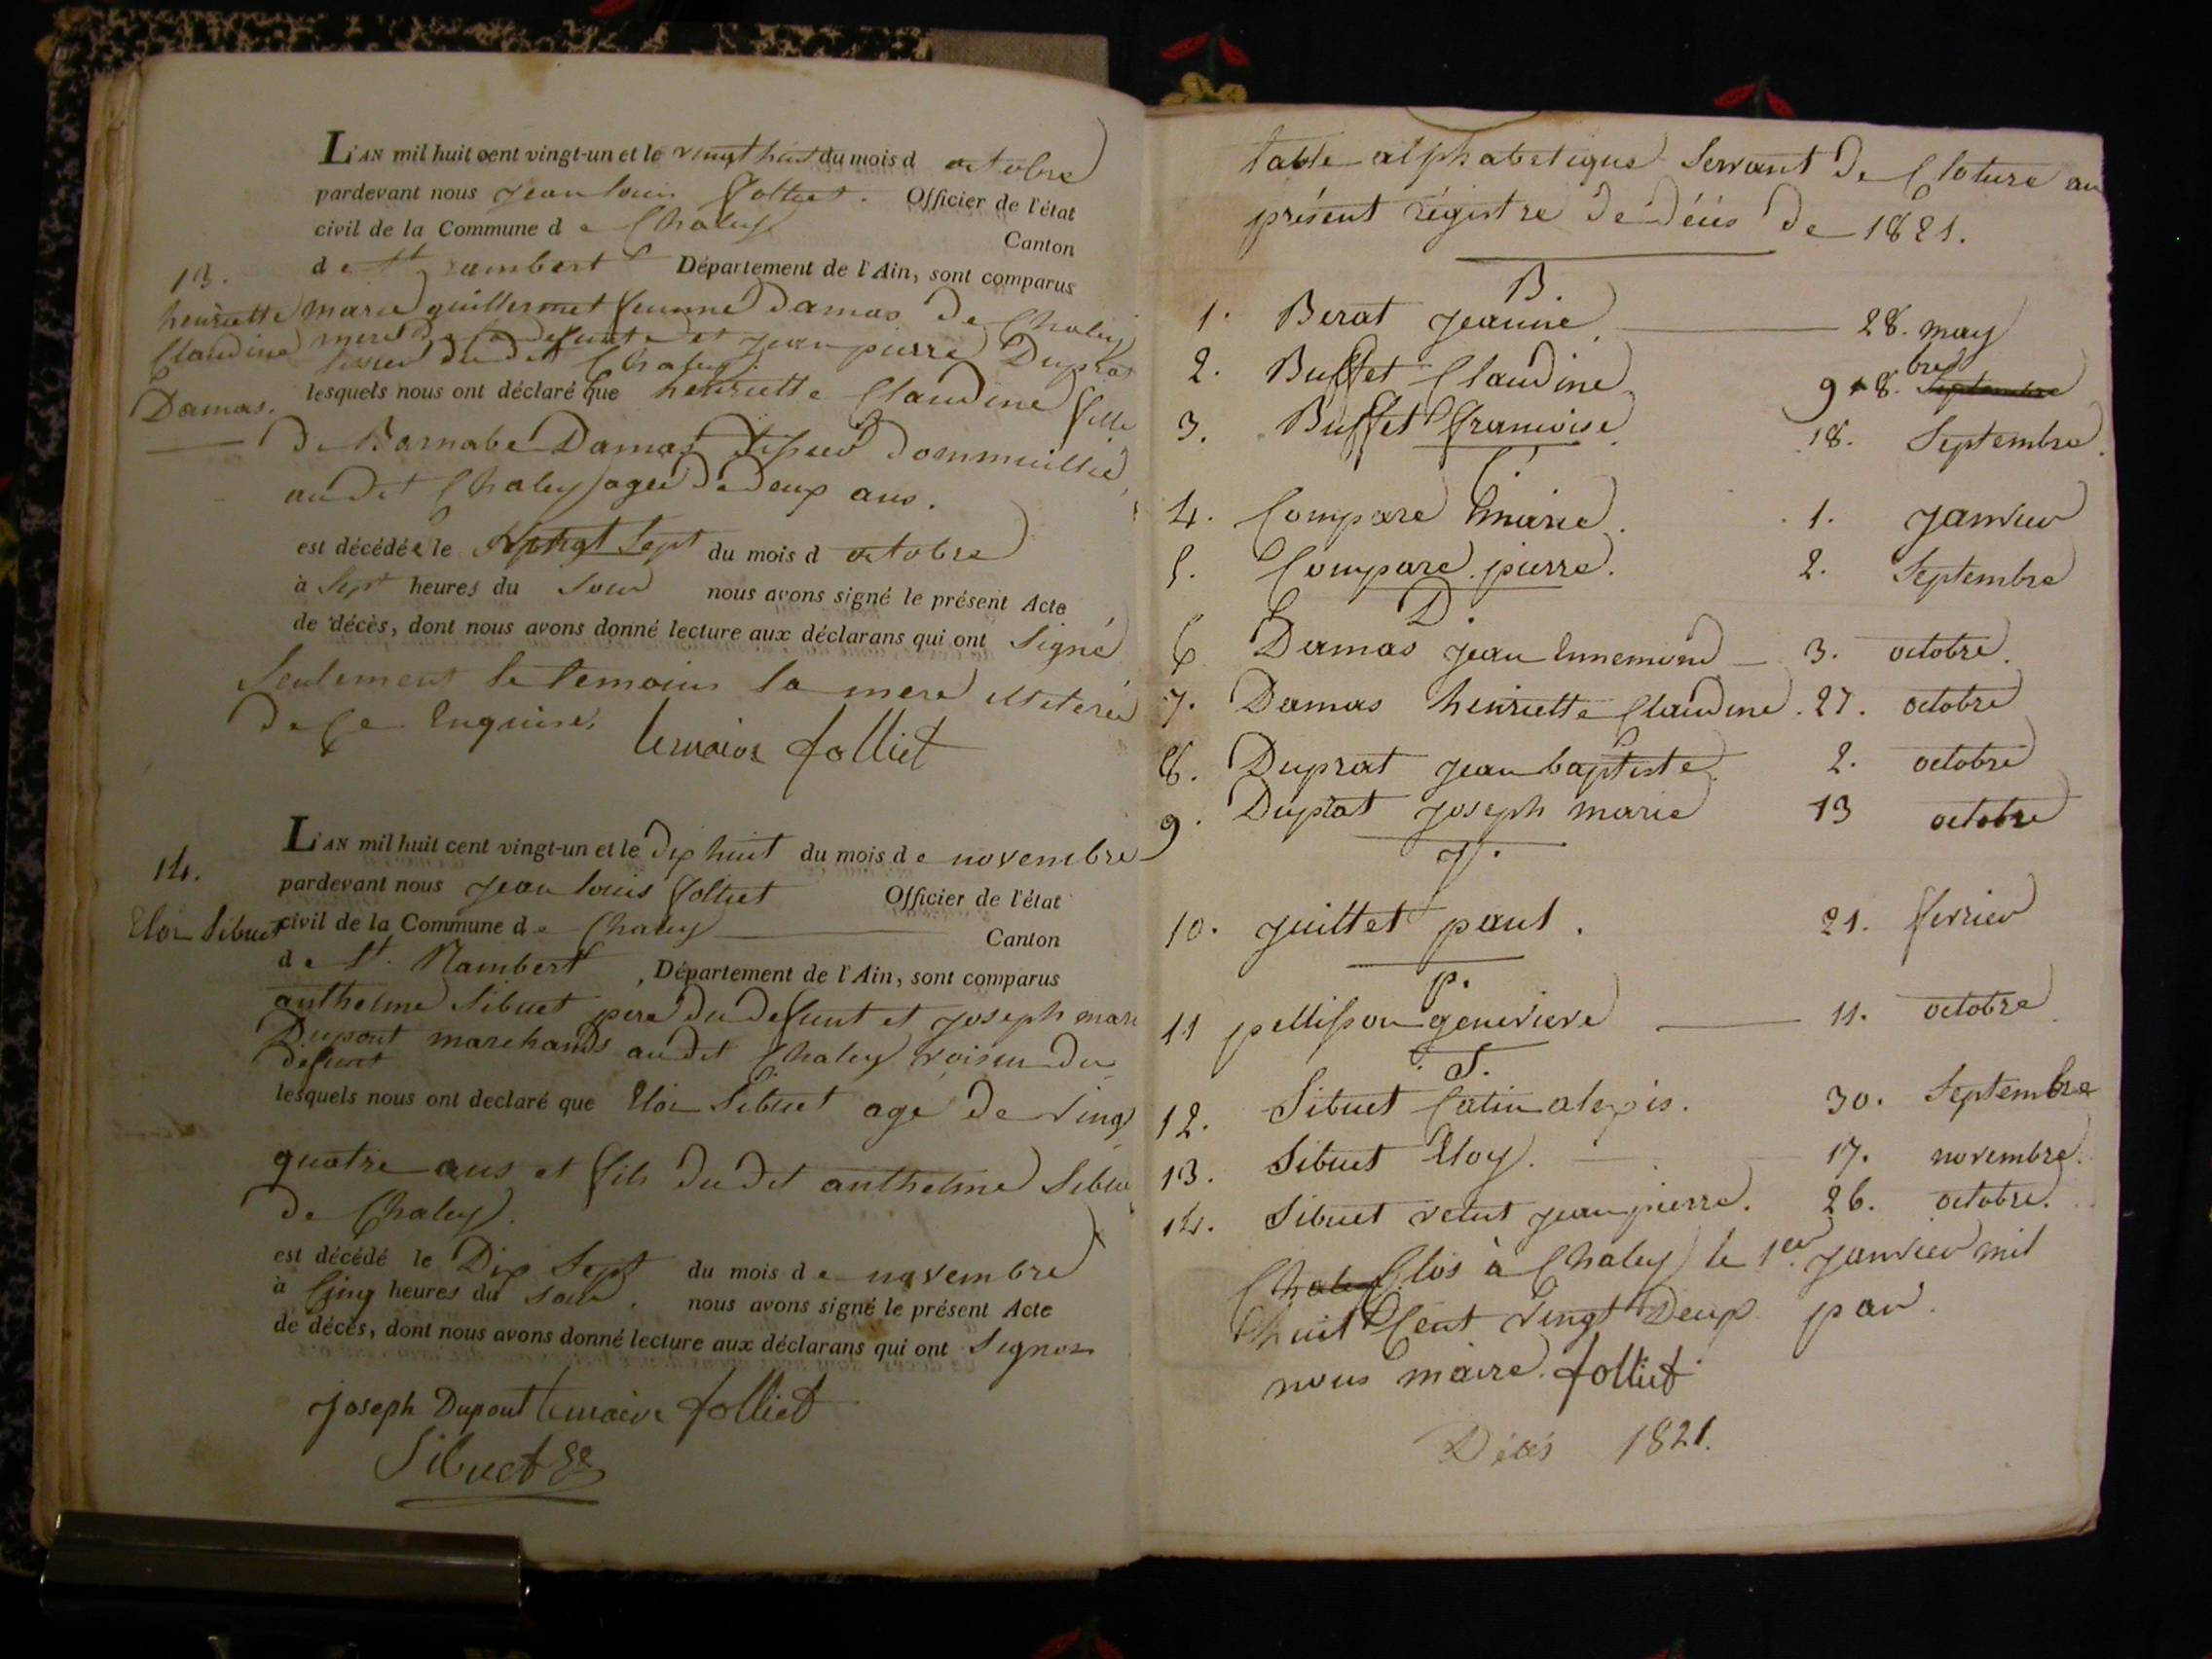 L'AN mil huit cent vingt-un et le vingt huit du mois d octobre
pardevant nous jean louis folliet. Officier de l'état
civil de la Commune d e Chaley
Canton
d e St rambert Département de l'Ain, sont comparus
13.
henriette
Claudine
Damas.
marie guillermet femme damas de Chaley
mere de la defunte et jean pierre Duprat
dudit Chaley.
lesquels nous ont déclaré que henriette Claudine fille
de Barnabe Damas dommicillié
audit Chaley agee de deux ans.
est décédée le vingt Sept du mois d octobre
à Sept heures du Soir nous avons signé le présent Acte
de décès, dont nous avons donné lecture aux déclarans qui ont Signé
Seulement le temoin la mere illiterée
de Ce Enquise.
lemaire folliet
L'AN mil huit cent vingt-un et le dix huit du mois d e novembre
14.
Eloi Sibuet
pardevant nous jean louis folliet Officier de l'état
civil de la Commune d e Chaley
Canton
d e St. Rambert, Département de l'Ain, sont comparus
anthelme Sibuet pere du defunt et joseph marie
Dupont marchands audit Chaley voisin du
defunt
lesquels nous ont declaré que Eloi Sibuet agé de vingt
quatre ans et fils dudit anthelme Sibuet
de Chaley.
est décédé le Dix Sept du mois d e novembre
à Cinq heures du soir. nous avons signé le présent Acte
de décès, dont nous avons donné lecture aux déclarans qui ont Signés
joseph Dupont lemaire folliet
Sibuet
table alphabetique Servant de Cloture au
présent régistre de décès de 1821.
B.
1. Berat jeanne 28. may
2. Buffet Claudine 9bre 8. Septembre
3. Buffet francoise 18. Septembre.
C.
4. Compare marie. 1. janvier
5. Compare pierre. 2. Septembre
D.
6 Damas jean Ennemond 3. octobre.
7. Damas henriette Claudine. 27. octobre
8. Duprat jean baptiste 2. octobre
9. Duprat joseph marie 13 octobre
J.
10. juillet paul. 21. fevrier
p.
11 pellisson genevieve 11. octobre
S.
12. Sibuet Catin alexis. 30. Septembre
13. Sibuet Eloy. 17. novembre.
14. Sibuet jean pierre. 26. octobre.
Chaley Clos à Chaley le 1er janvier mil
huit Cent vingt Deux par
nous maire. folliet
Décès 1821.